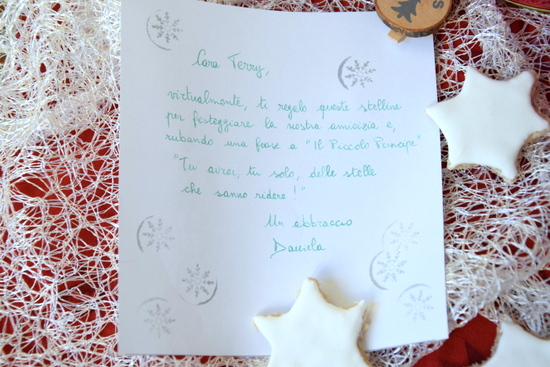 Cara Terry,
virtualmente, ti regalo queste stelline
per festeggiare la nostra amicizia e,
rubando una frase a "Il Piccolo Principe"
"Tu avrai, tu solo, delle stelle
che sanno ridere!"
Un abbraccio
Daniela